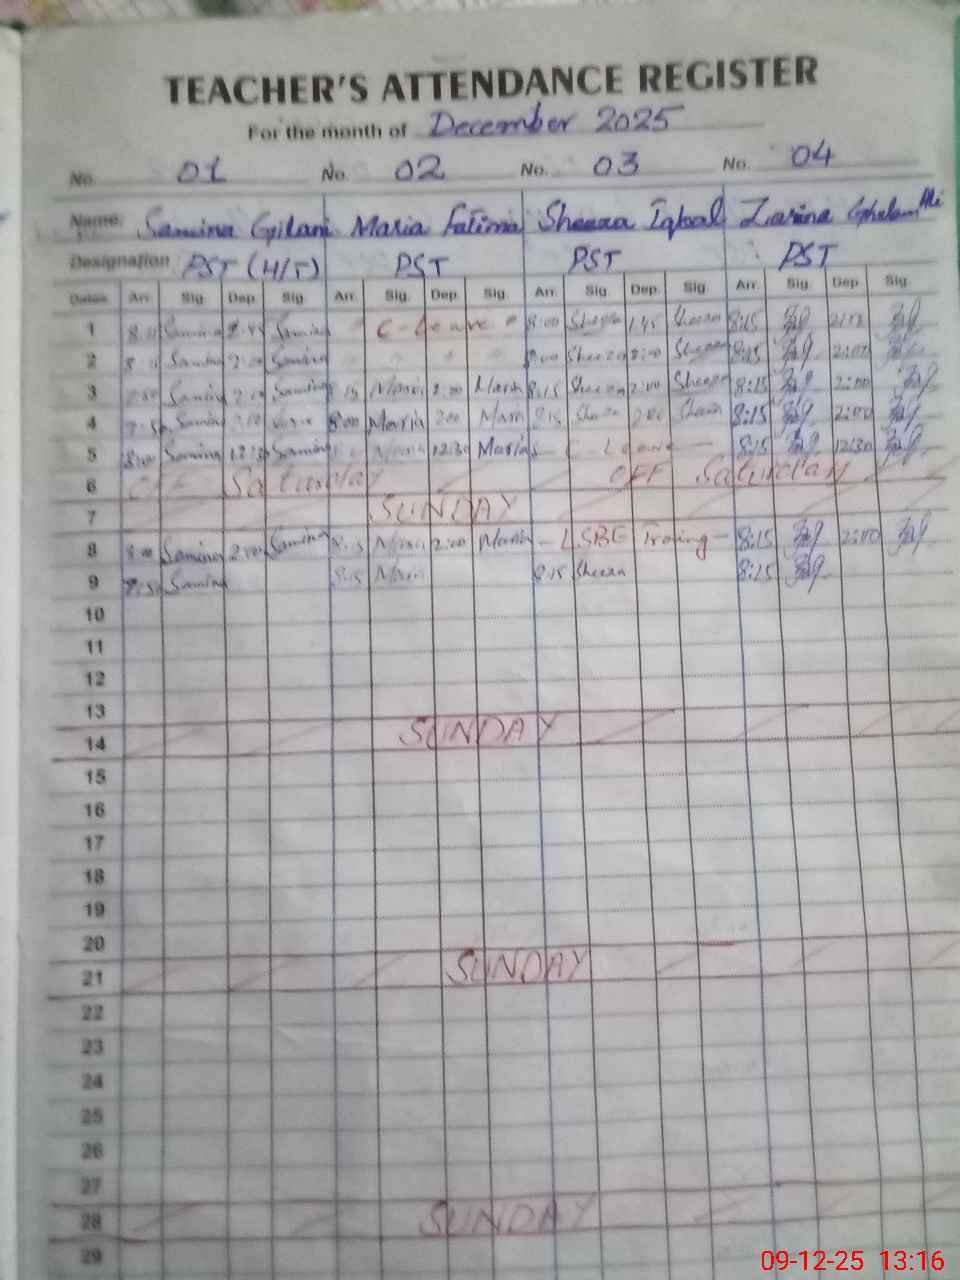 TEACHER'S ATTENDANCE REGISTER
For the month of December 2025
No. 01 No. 02 No. 03 No. 04
Name: Samina Gilani Maria Fatima Sheeza Iqbal Zarina Ghulam Ali
Designation PST (H/T) PST PST PST
Dates Arr. Sig. Dep. Sig. Arr. Sig. Dep. Sig. Arr. Sig. Dep. Sig. Arr. Sig. Dep. Sig.
1 Samina Samina C-Leave 8:00 Sheeza 1:45 Sheeza 8:15
2 Samina 2:00 Samina 8:00 Sheeza 2:00 Sheeza 8:15 2:00
3 Samina 2:00 Samina 8:15 Maria 2:00 Maria 8:15 Sheeza 2:00 Sheeza 8:15 2:00
4 Samina 8:00 Maria 2:00 Maria 8:15 Sheeza 2:00 Sheeza 8:15 2:00
5 8:00 Samina 12:30 Samina Maria 12:30 Maria C-Leave 8:15 12:30
6 OFF Saturday OFF Saturday
7 SUNDAY
8 8:00 Samina 2:00 Samina 8:15 Maria 2:00 Maria - LSBE Traning - 8:15 2:00
9 7:50 Samina 8:15 Maria 8:15 Sheeza 8:15
10
11
12
13
14 SUNDAY
15
16
17
18
19
20
21 SUNDAY
22
23
24
25
26
27
28 SUNDAY
29
09-12-25 13:16